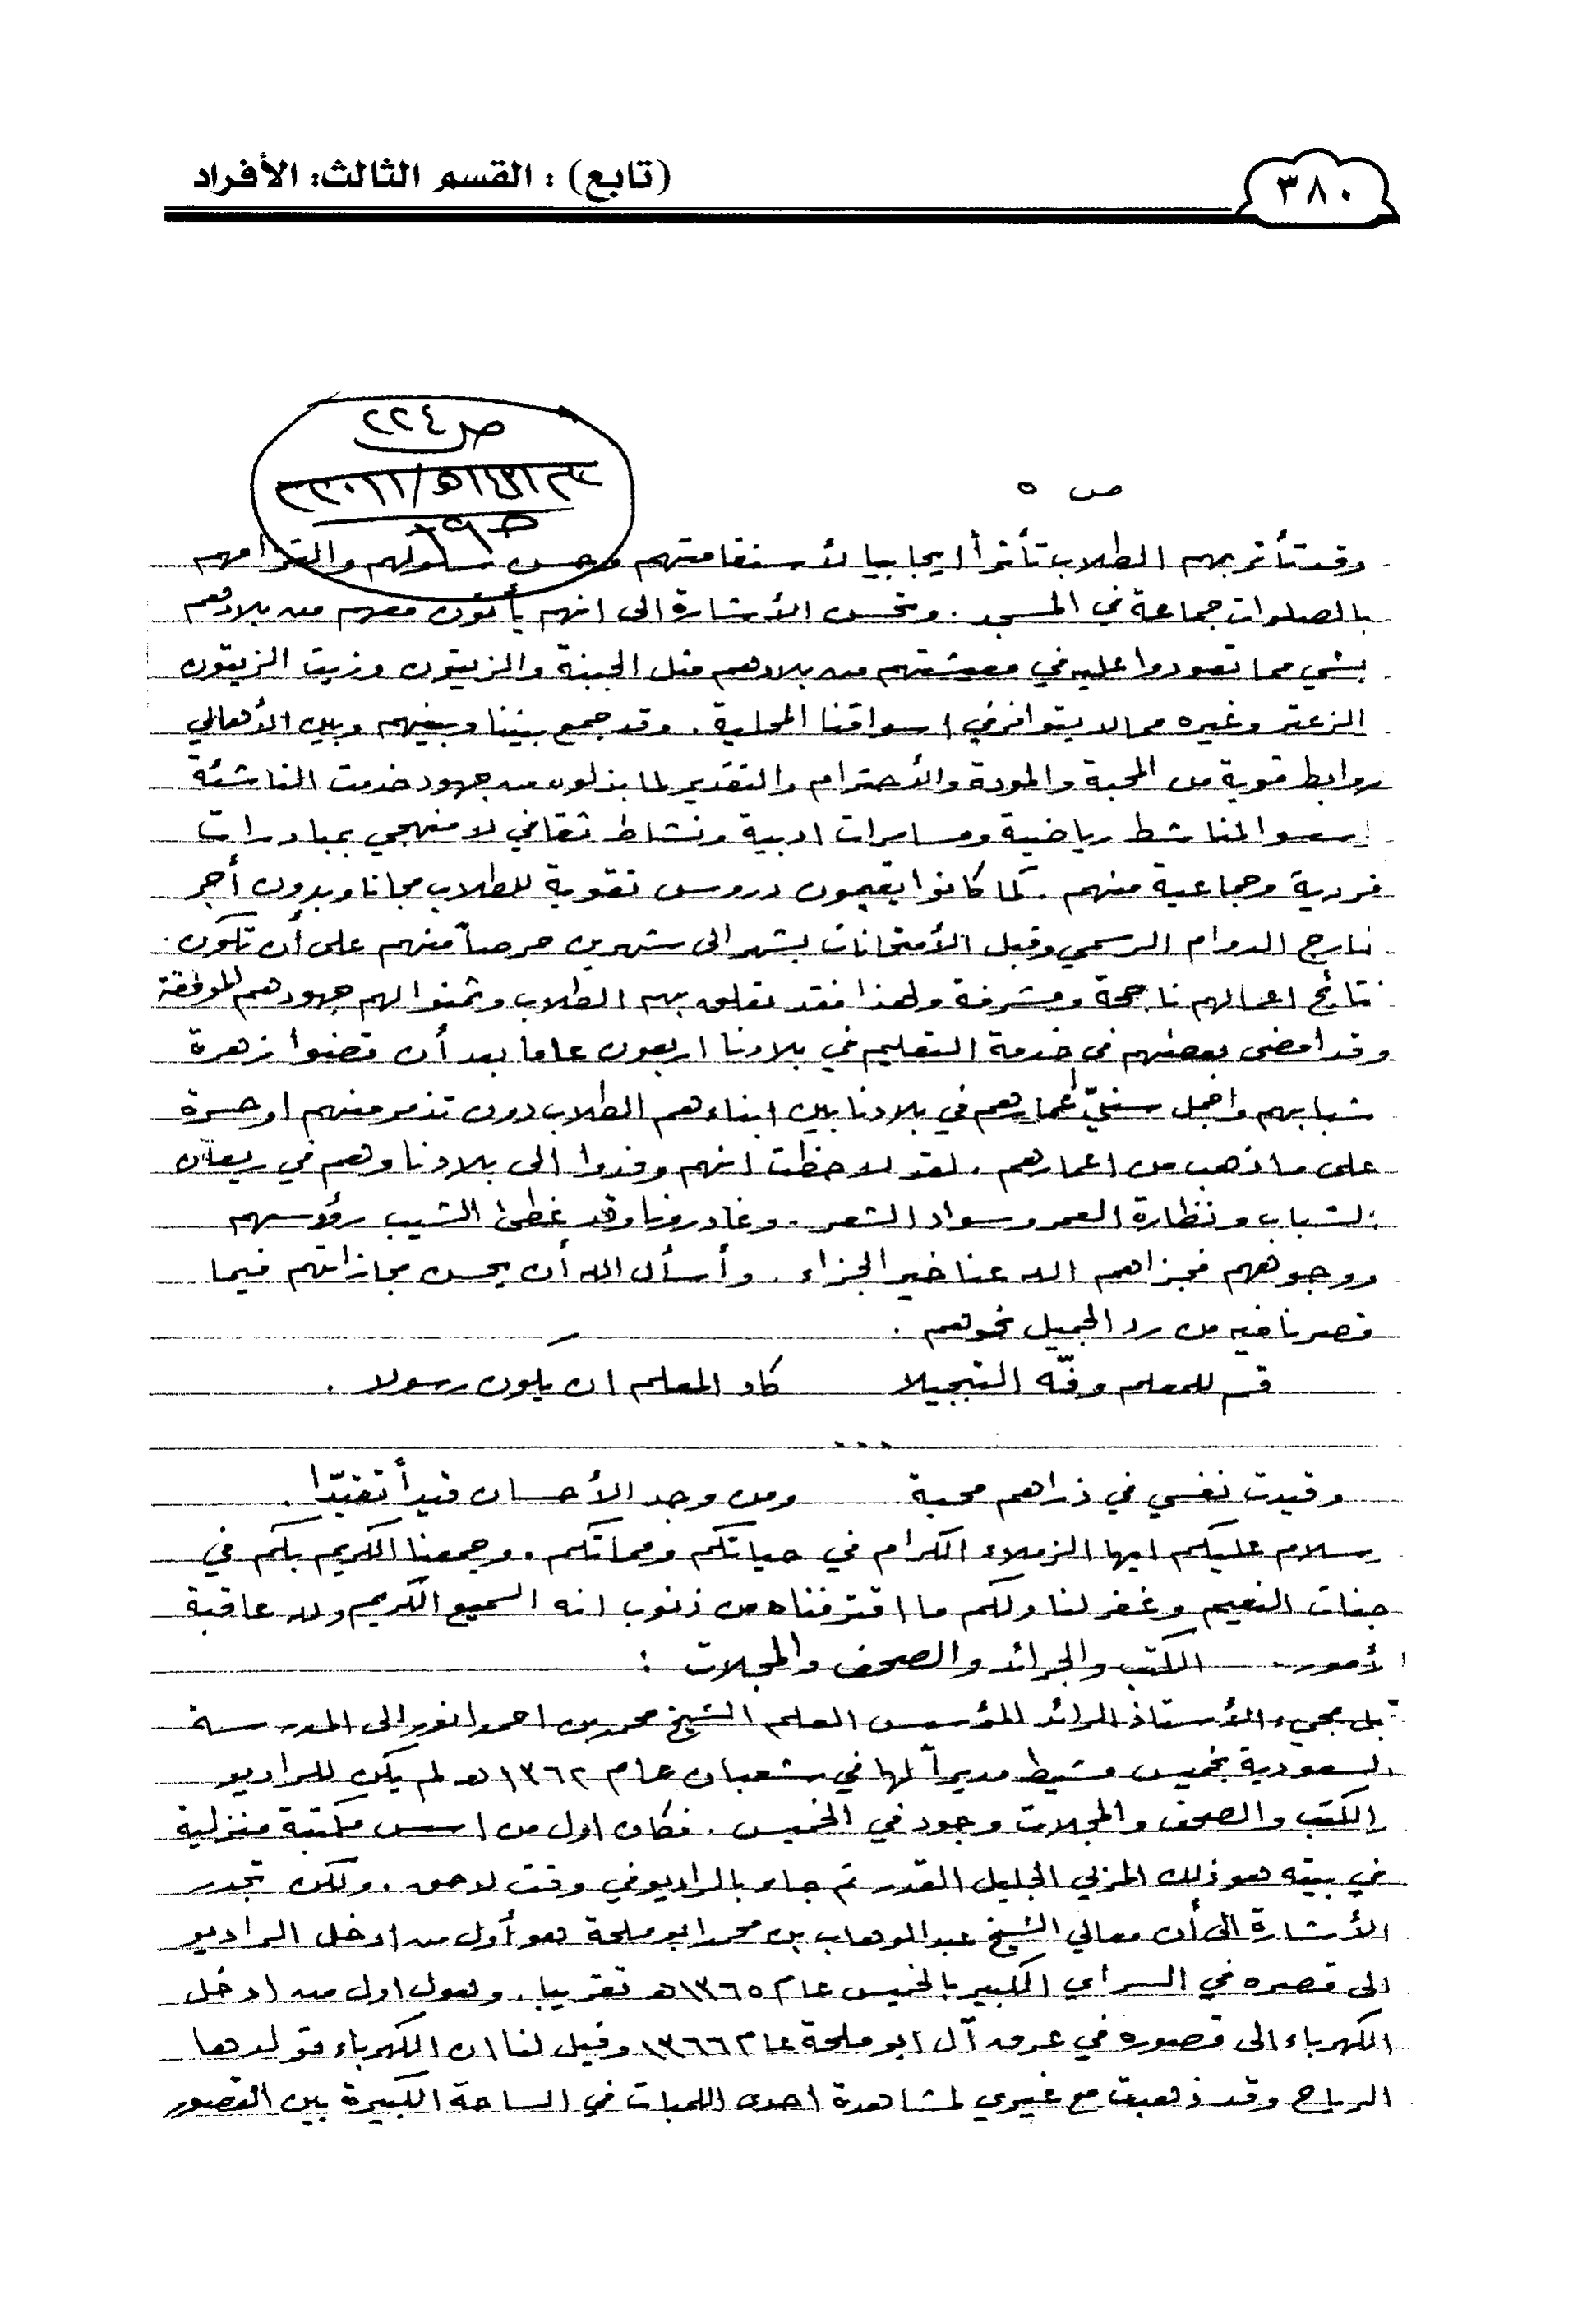 (تابع) : القسم الثالث: الأفراد
٣٨٠
ص ٢٢٤
ص ٥
وقد تأثر بهم الطلاب تأثراً ايجابيا لأستقامتهم وحسن سلوكهم والتزامهم
بالصلوات جماعة في المسجد . وتحسن الأشارة الى انهم يأتون معهم من بلادهم
بشي مما تعودوا عليه في معيشتهم من بلادهم مثل الجبنة والزيتون وزيت الزيتون
الزعتر وغيره مما لا يتوافر في اسواقنا المحلية . وقد جمع بيننا وبينهم وبين الأهالي
روابط قوية من المحبة والمودة والأحترام والتقدير لما بذلون من جهود خدمت الناشئة
اسسوا المناشط رياضية ومسامرات ادبية ونشاط ثقافي لا منهجي بمبادرات
فردية وجماعية منهم . كما كانوا يقيمون دروس تقوية للطلاب مجانا وبدون أجر
خارج الدوام الرسمي وقبل الأمتحانات بشهر الى شهرين حرصاً منهم على أن تكون
نتائج اعمالهم ناجحة ومشرفة ولهذا فقد تعلق بهم الطلاب وثمنوا لهم جهودهم الموفقة
وقد امضى بعضهم في خدمة التعليم في بلادنا اربعون عاما بعد أن قضوا زهرة
شبابهم واجمل سنيّ أعمارهم في بلادنا بين ابناءهم الطلاب دون تذمر منهم او حسرة
على ما ذهب من اعمارهم . لقد لاحظت انهم وفدوا الى بلادنا وهم في ريعان
الشباب ونظارة العمر وسواد الشعر . وغادرونا وقد غطئ الشيب رؤوسهم
ووجوههم فجزاهم الله عنا خير الجزاء . وأسأل الله أن يحسن مجازاتهم فيما
قصرنا فيه من رد الجميل نحوهم .
قم للمعلم وفّه التبجيلا كاد المعلم ان يكون رسولا .
...
وقيدت نفسي في ذراهم محبة ومن وجد الأحسان قيداً تقيّدا .
سلام عليكم ايها الزملاء الكرام في حياتكم ومماتكم . وجمعنا الكريم بكم في
جنات النعيم وغفر لنا ولكم ما اقترفناه من ذنوب انه السميع الكريم ولله عاقبة
الأمور . الكتب والجرائد والصحف والمجلات :
قبل مجيء الأستاذ الرائد المؤسس العلم الشيخ محمد بن احمد انور الى المدرسة
السعودية بخميس مشيط مديراً لها في شعبان عام ١٣٦٢هـ لم يكن للراديو
والكتب والصحف والمجلات وجود في الخميس . فكان اول من اسس مكتبة منزلية
في بيته هو ذلك المربي الجليل القدر ثم جاء بالراديو في وقت لاحق . ولكن تجدر
الأشارة الى أن معالي الشيخ عبدالوهاب بن محمد ابو ملحة هو أول من ادخل الراديو
الى قصره في السراي الكبير بالخميس عام ١٣٦٥هـ تقريبا . وهو اول من ادخل
الكهرباء الى قصوره في عرق آل ابو ملحة عام ١٣٦٦ وقيل لنا ان الكهرباء تولدها
الرياح وقد ذهبت مع غيري لمشاهدة احدى اللمبات في الساحة الكبيرة بين القصور